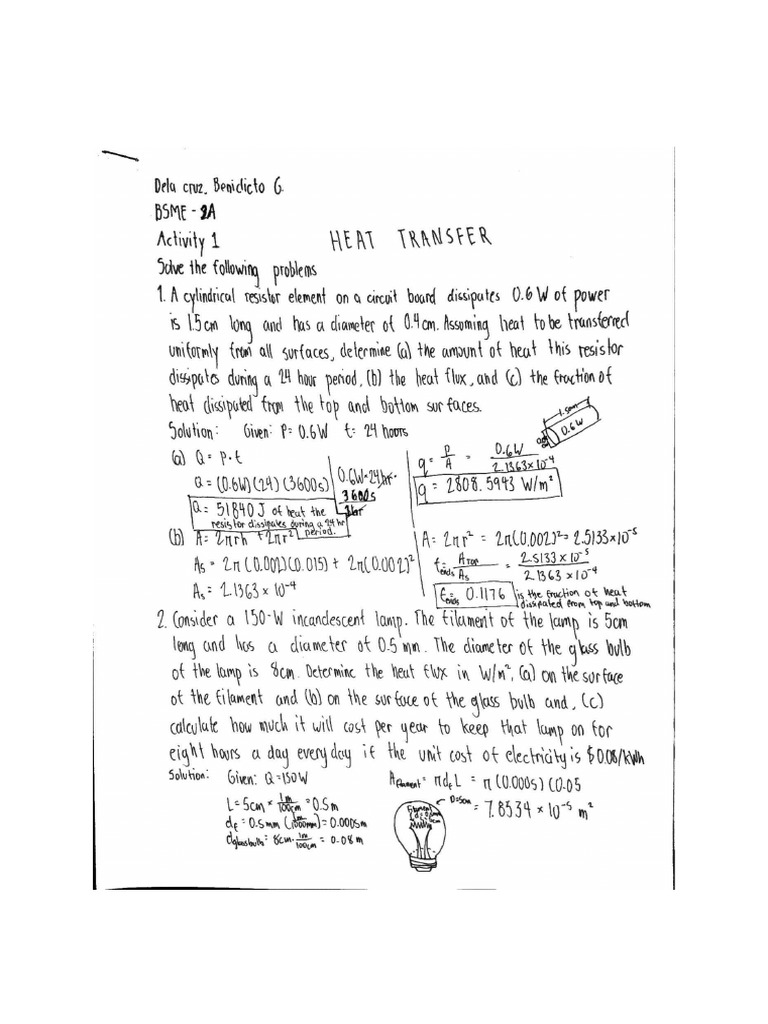 Dela cruz, Benidicto G.
BSME - 2A
Activity 1
HEAT TRANSFER
Solve the following problems
1. A cylindrical resistor element on a circuit board dissipates 0.6 W of power
is 1.5 cm long and has a diameter of 0.4 cm. Assuming heat to be transferred
uniformly from all surfaces, determine (a) the amount of heat this resistor
dissipates during a 24 hour period, (b) the heat flux, and (c) the fraction of
heat dissipated from the top and bottom surfaces.
Solution: Given: P = 0.6 W t = 24 hours
1.5cm
0.6 W
(a) Q = P · t
Q = (0.6W)(24)(3600s)
0.6W · 24hr · 3600s/1hr
Q = 51840 J of heat the
resistor dissipates during a 24 hr
period.
q = P/A = 0.6W / 2.1363 x 10⁻⁴
q = 2808.5943 W/m²
(b) A = 2πrh + 2πr²
As = 2π (0.002)(0.015) + 2π(0.002)²
As = 2.1363 x 10⁻⁴
A = 2πr² = 2π(0.002)² = 2.5133 x 10⁻⁵
fends = ATOP/As = 2.5133 x 10⁻⁵ / 2.1363 x 10⁻⁴
fends 0.1176 is the fraction of heat
dissipated from top and bottom
2. Consider a 150-W incandescent lamp. The filament of the lamp is 5cm
long and has a diameter of 0.5 mm. The diameter of the glass bulb
of the lamp is 8cm. Determine the heat flux in W/m², (a) on the surface
of the filament and (b) on the surface of the glass bulb and, (c)
calculate how much it will cost per year to keep that lamp on for
eight hours a day everyday if the unit cost of electricity is $0.08/kWh
Solution: Given: Q = 150 W
L = 5cm × 1m/100cm = 0.5 m
df = 0.5 mm (1m/1000mm) = 0.0005m
dglassbulb = 8cm · 1m/100cm = 0.08 m
Afilament = πdfL = π (0.0005)(0.05
= 7.8534 × 10⁻⁵ m²
Filament